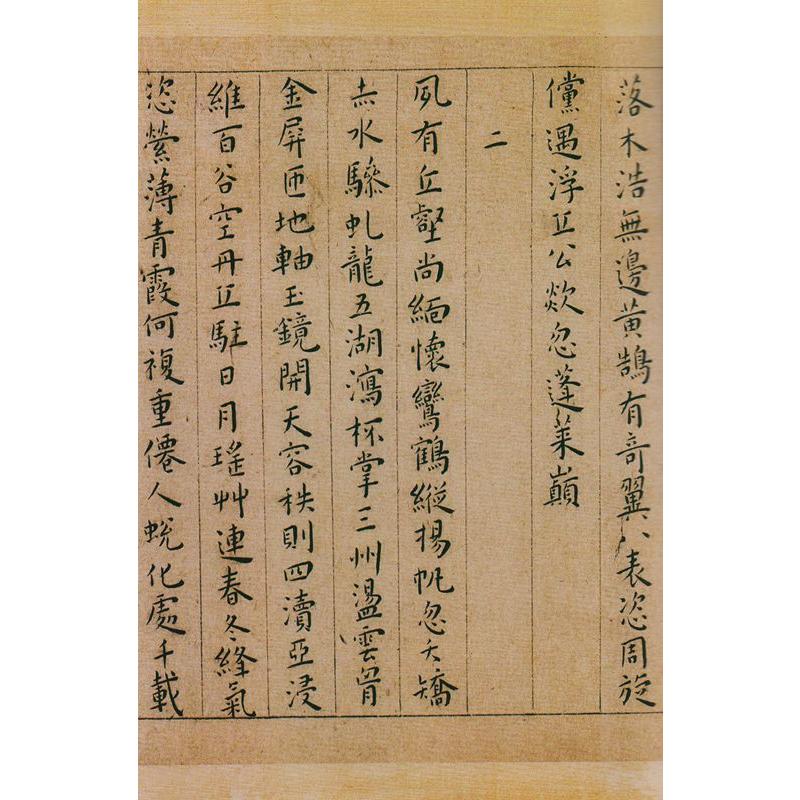 落木浩無邊黃鵠有奇翼八表恣周旋
儻遇浮丘公歘忽蓬萊巔
二
夙有丘壑尚緬懷鸞鶴縱揚帆忽夭矯
赤水驂虬龍五湖瀉杯掌三州盪雲胷
金屏匝地軸玉鏡開天容秩則四瀆亞浸
維百谷空丹丘駐日月瑤艸連春冬絳氣
恣縈薄青霞何複重僊人蛻化處千載